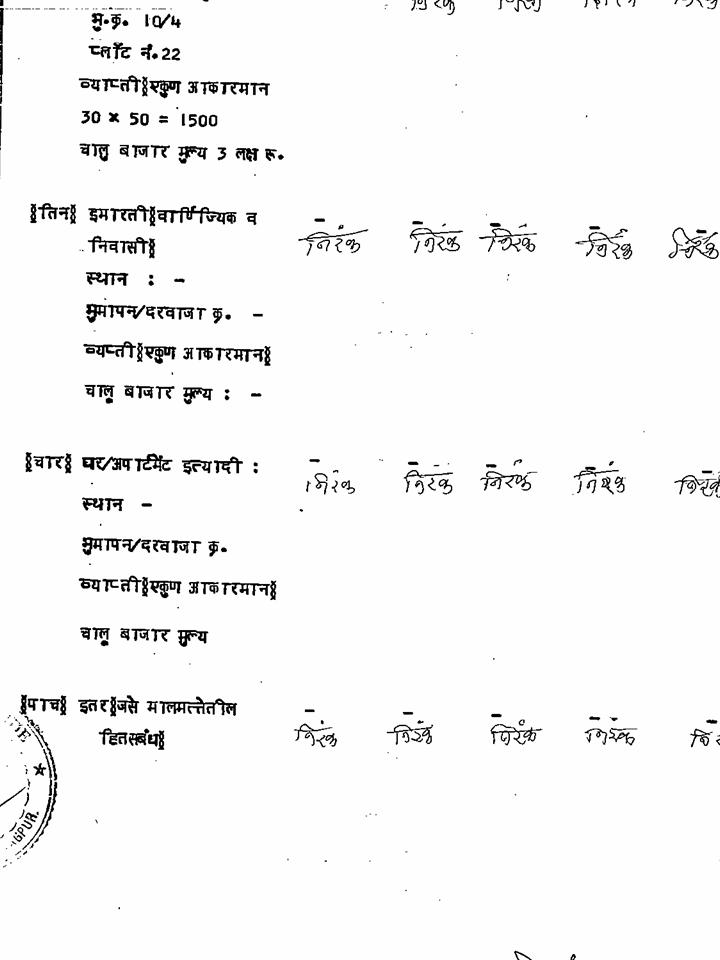 निरंक
भु.क्र. 10/4
प्लॉट नं.22
व्याप्ती(एकुण आकारमान
30 × 50 = 1500
चालु बाजार मुल्य 3 लक्ष रू.
(तिन) इमारती(वाणिज्यिक व
निवासी) निरंक निरंक निरंक निरंक निरंक
स्थान : -
भुमापन/दरवाजा क्र. -
व्यप्ती(एकुण आकारमान)
चालू बाजार मुल्य : -
(चार) घर/अपार्टमेंट इत्यादी :
निरंक निरंक निरंक निरंक निरंक
स्थान -
भुमापन/दरवाजा क्र.
व्याप्ती(एकुण आकारमान)
चालू बाजार मुल्य
(पाच) इतर(जसे मालमत्तेतील
हितसबंध) निरंक निरंक निरंक निरंक
GPUR.